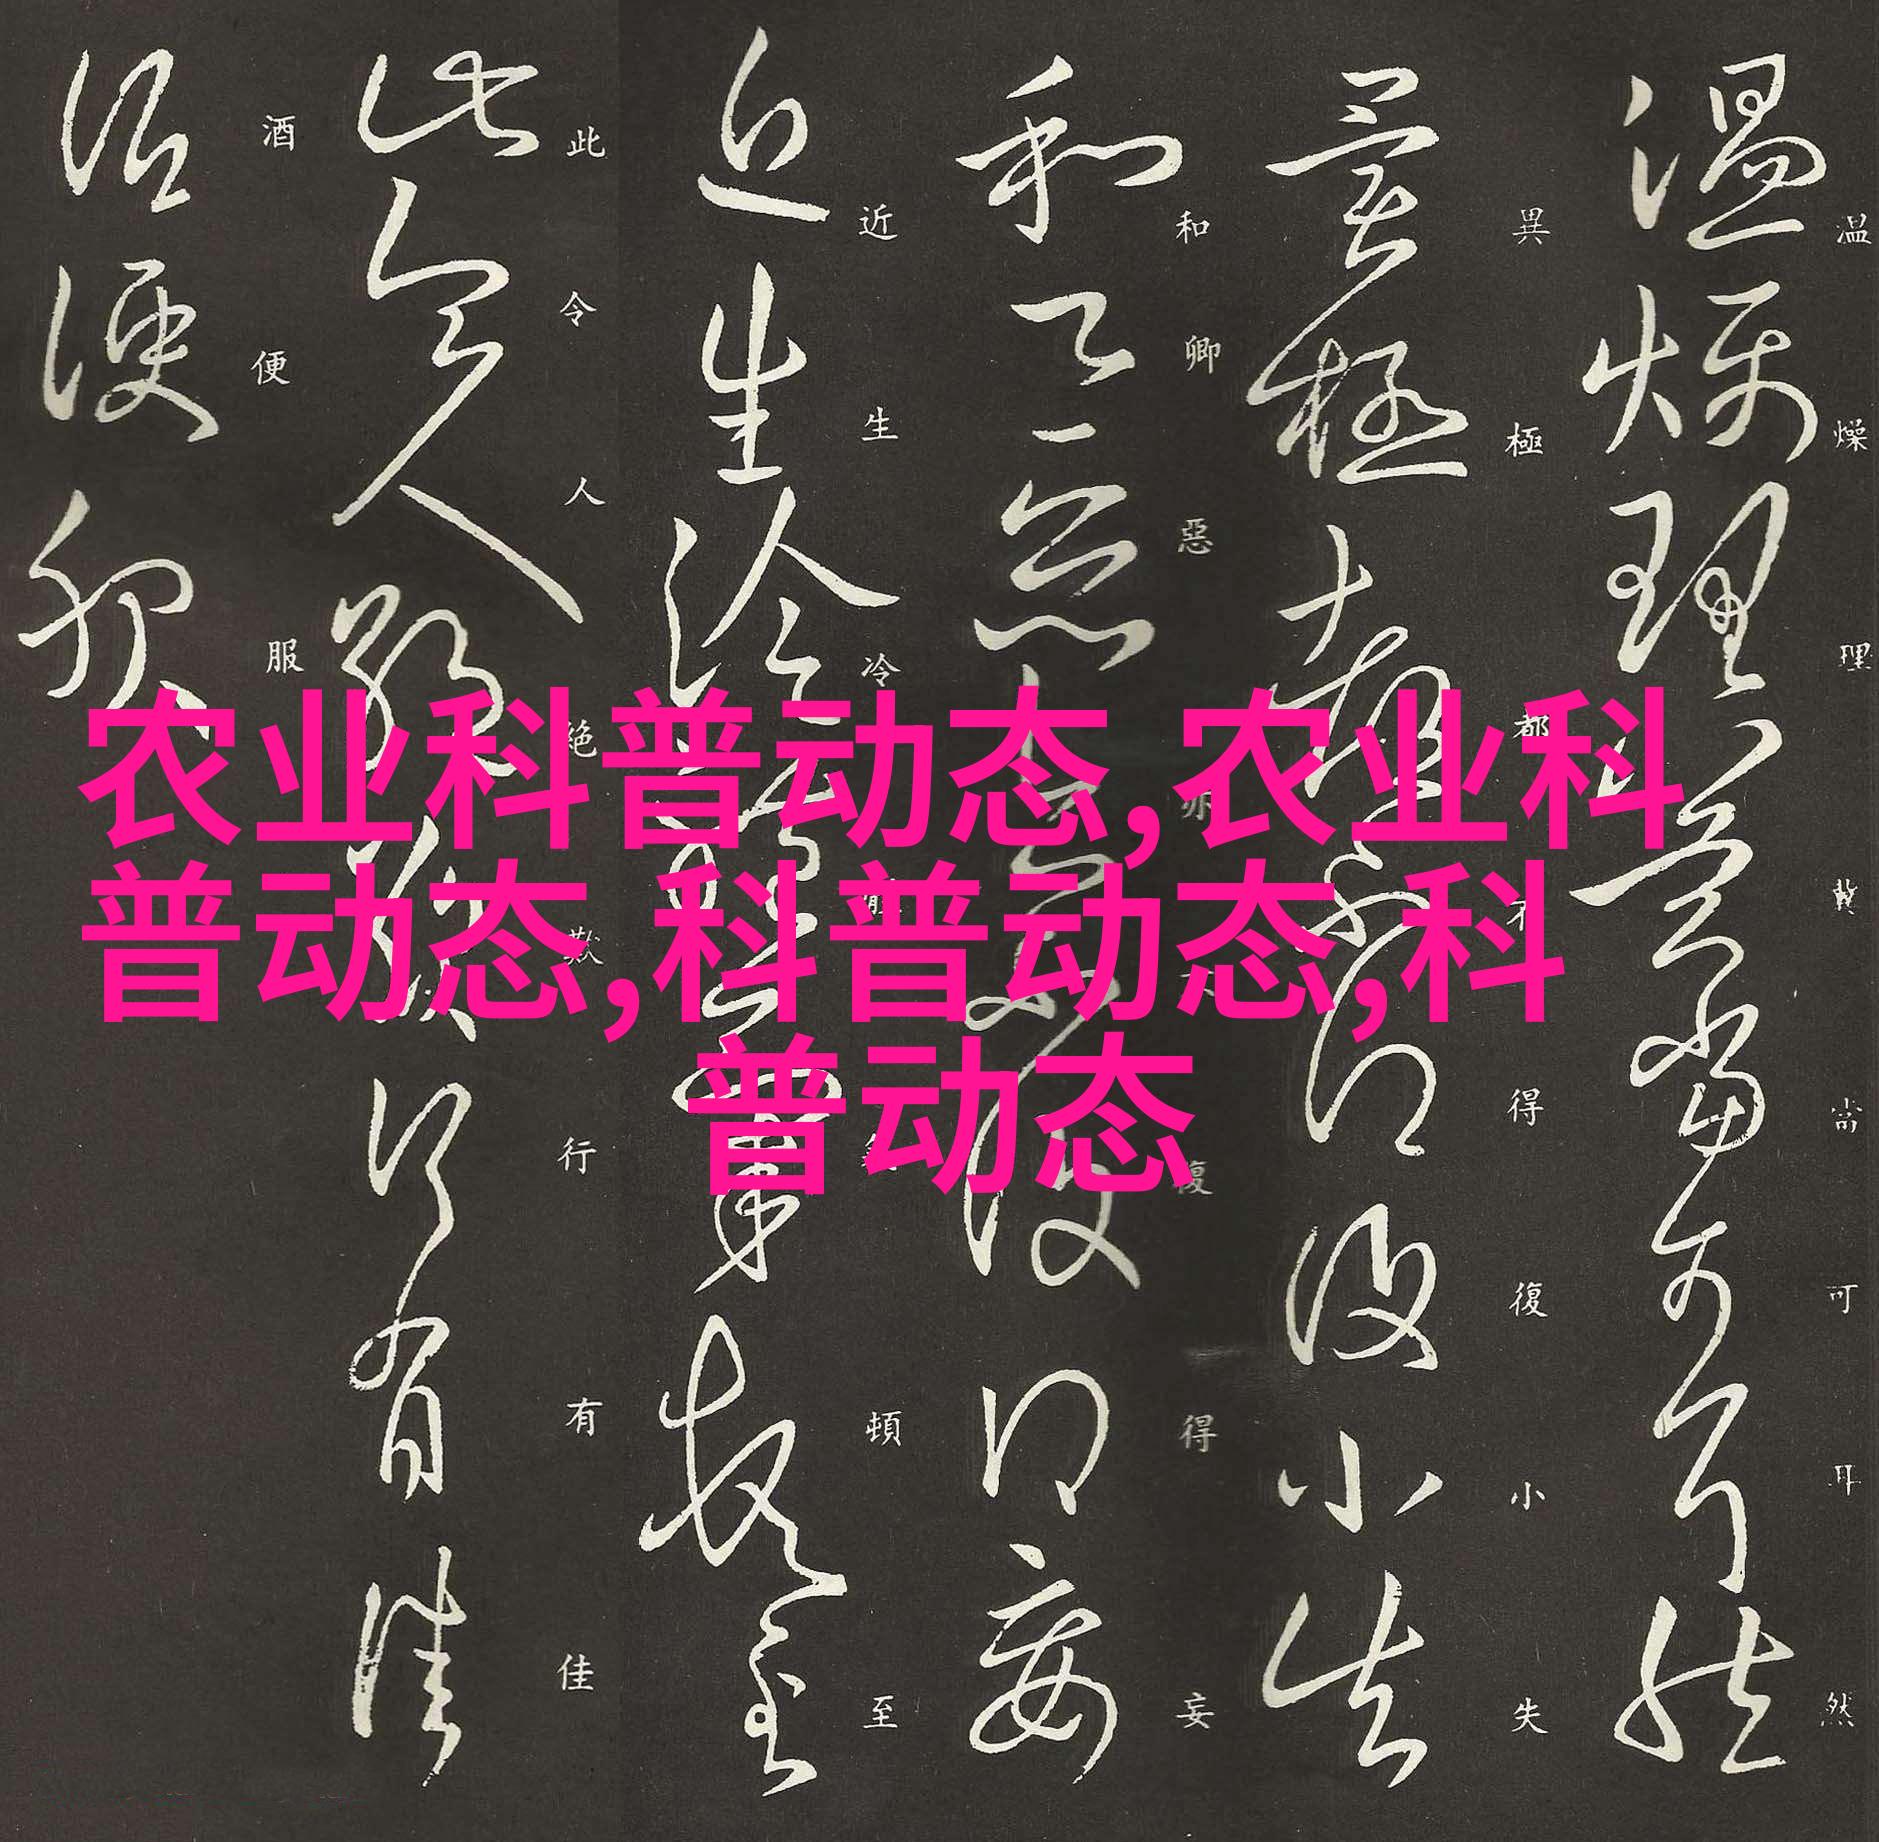 农业科普动态,农业科
普动态,科普动态,科
普动态
温燥理冀當可耳然
異極都不得復小失
和卿惡亦不復得妄
近生冷頓至
此令人絶欺行有佳
酒便服